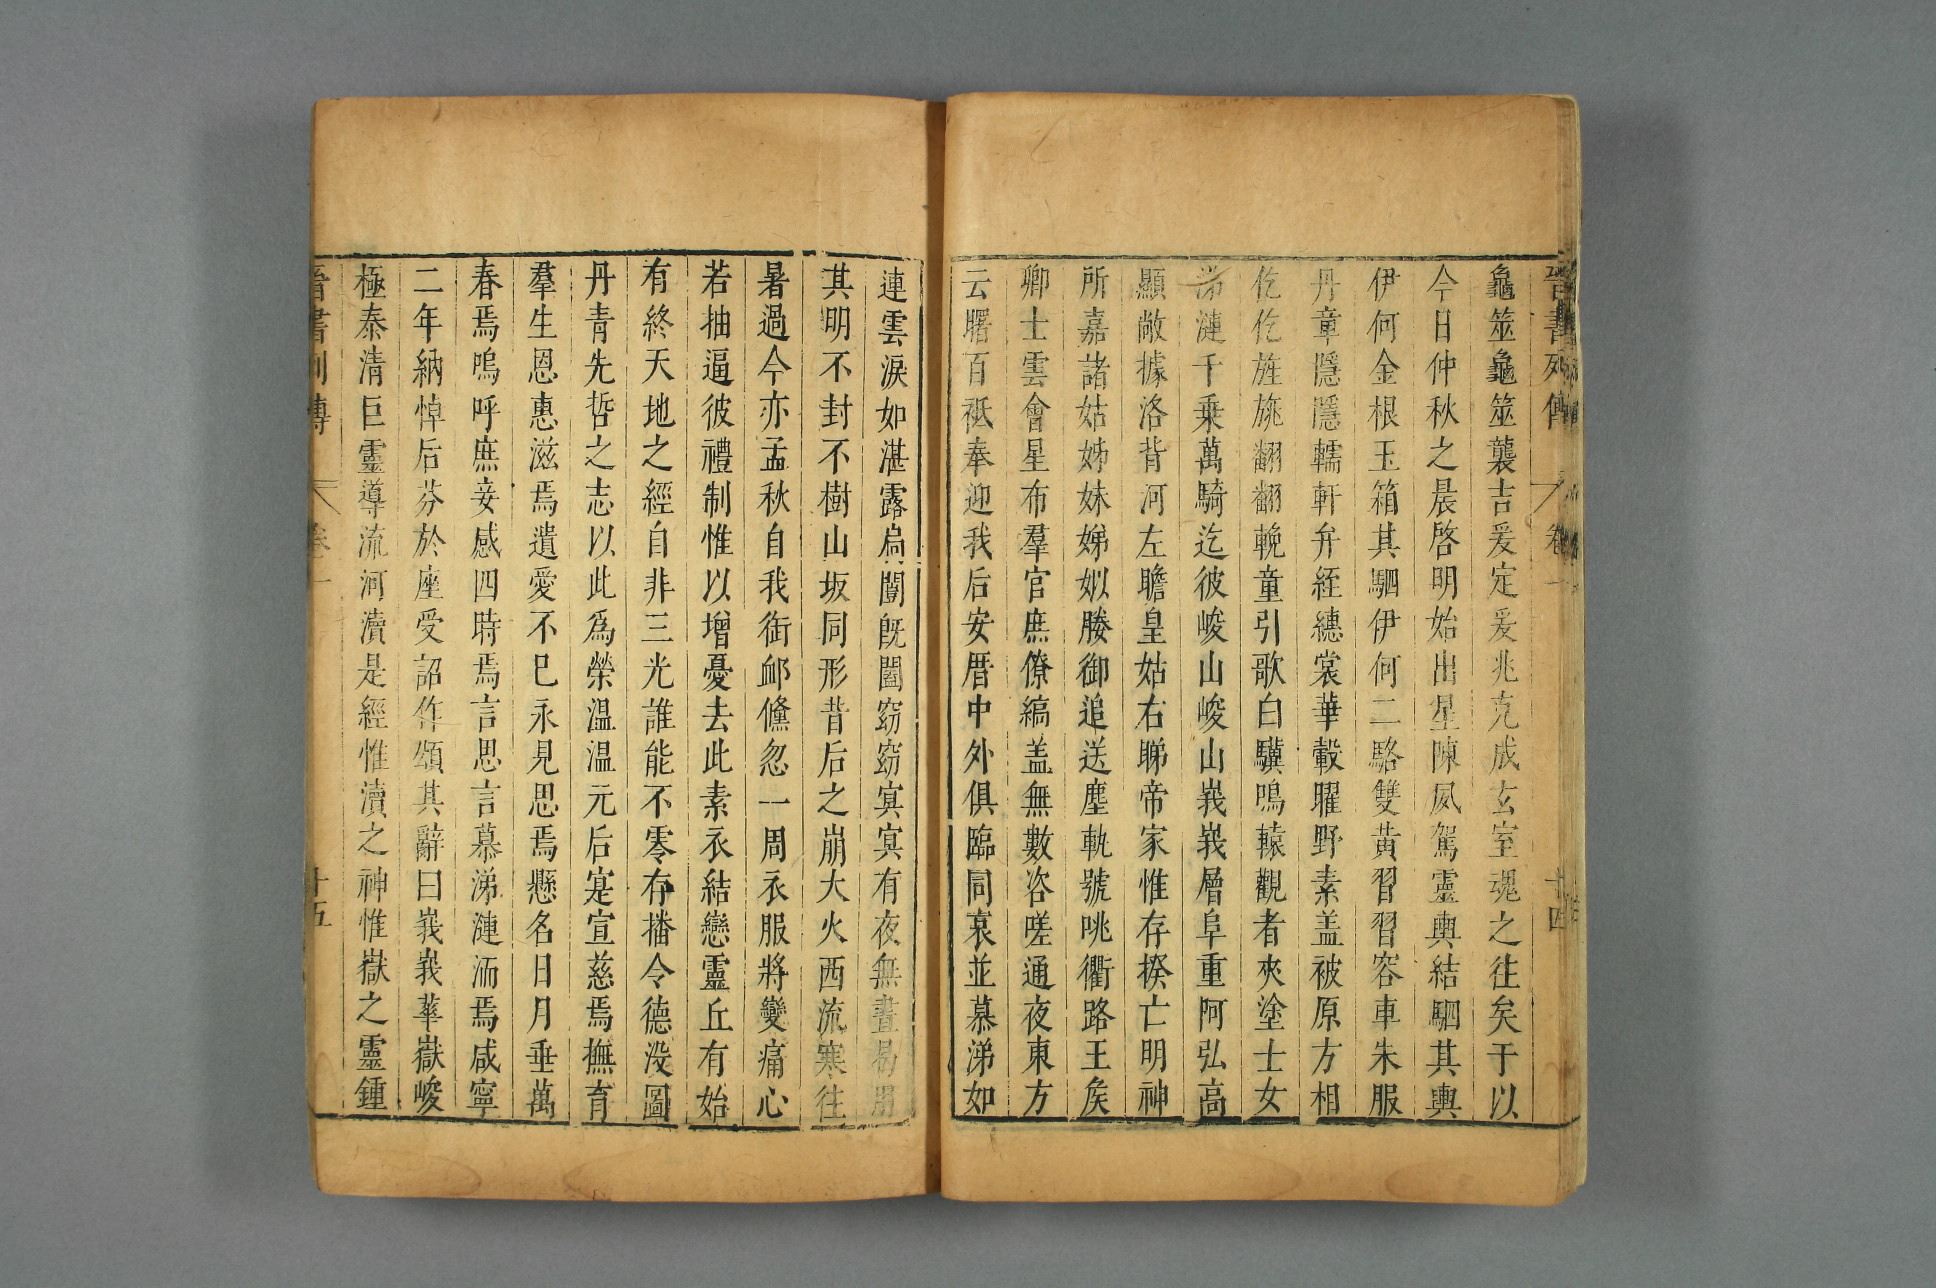 晉書列傳 卷一 十四
龜筮龜筮襲吉爰定爰兆克成玄室魂之往矣于以
今日仲秋之晨啓明始出星陳夙駕靈輿結駟其輿
伊何金根玉箱其駟伊何二駱雙黃習習容車朱服
丹章隱隱轜軒弁絰繐裳華轂曜野素盖被原方相
仡仡旌旐翻翻輓童引歌白驥鳴轅觀者夾塗士女
涕漣千乗萬騎迄彼峻山峻山峩峩層阜重阿弘高
顯敞據洛背河左瞻皇姑右睇帝家惟存揆亡明神
所嘉諸姑姊妹娣姒媵御追送塵軌號咷衢路王矦
卿士雲會星布羣官庶僚縞盖無數咨嗟通夜東方
云曙百祗奉迎我后安厝中外俱臨同哀並慕涕如
連雲淚如湛露扃闥旣闔窈窈㝠㝠有夜無晝曷用
其明不封不樹山坂同形昔后之崩大火西流寒往
暑過今亦孟秋自我銜䘏儵忽一周衣服將變痛心
若抽逼彼禮制惟以增憂去此素衣結戀靈丘有始
有終天地之經自非三光誰能不零存播令德没圖
丹青先哲之志以此爲榮溫溫元后寔宣慈焉撫育
羣生恩惠滋焉遺愛不已永見思焉懸名日月垂萬
春焉嗚呼庶妾感四時焉言思言慕涕漣洏焉咸寧
二年納悼后芬於座受詔作頌其辭曰峩峩華嶽峻
極泰清巨靈導流河瀆是經惟瀆之神惟嶽之靈鍾
晉書列傳 卷一 十五